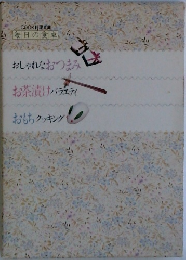 毎日の食卓
おしゃれなおつまみ
お茶漬けバラエティ
おもちクッキング